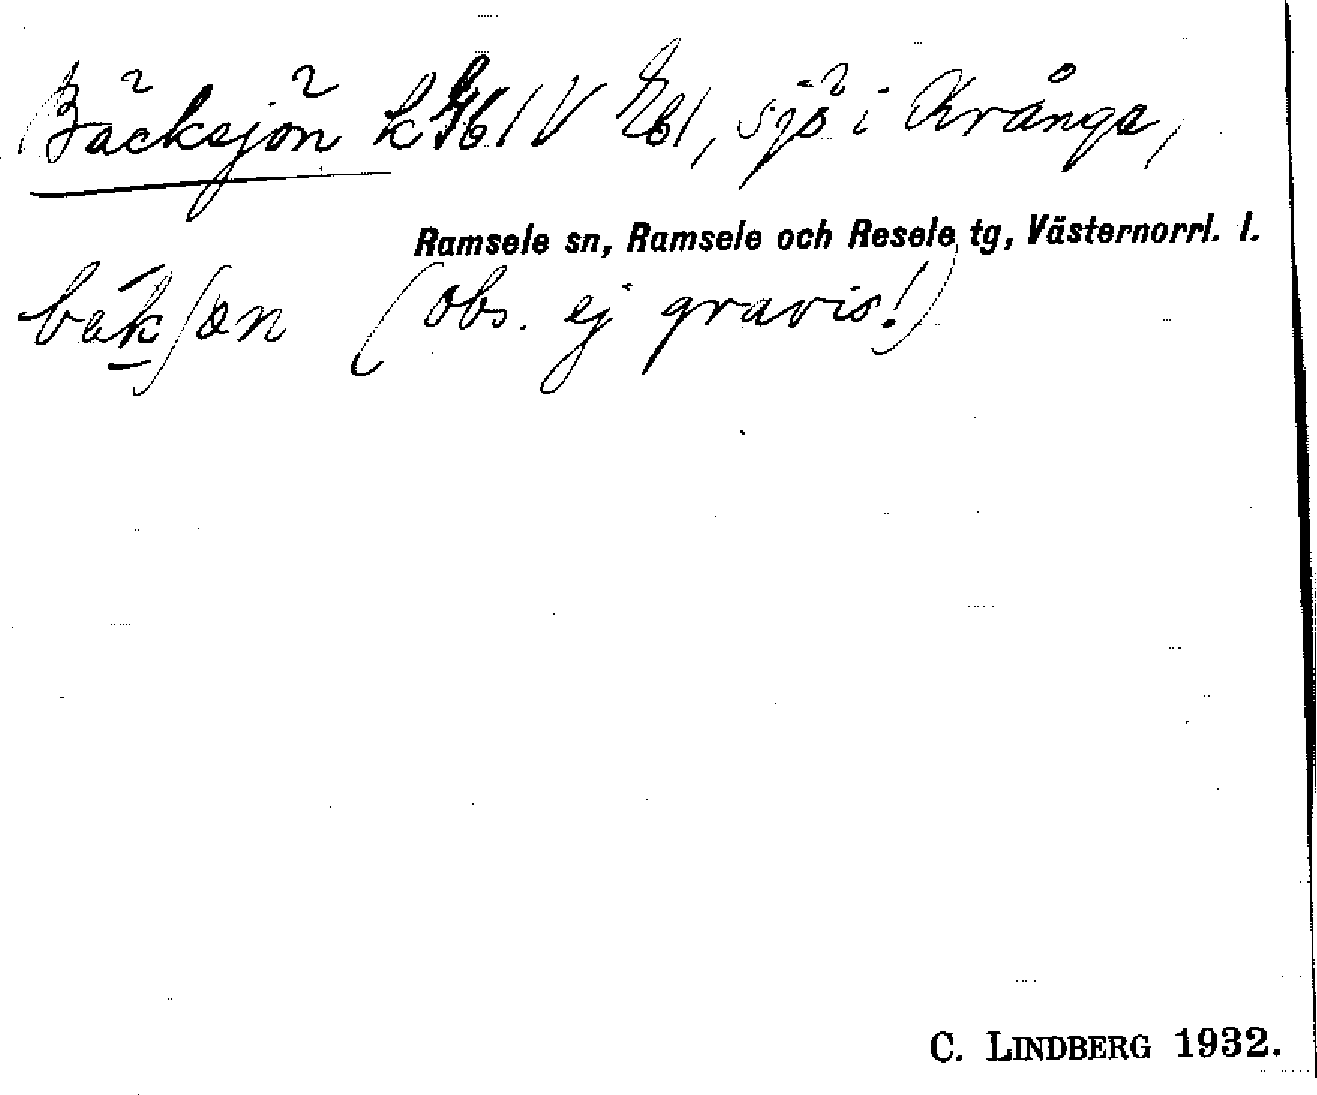 Bäcksjön kSbl V Ebl, sjö i Krånge,
Ramsele sn, Ramsele och Resele tg, Västernorrl. l.
(obs. ej gravis!)
C. LINDBERG 1932.